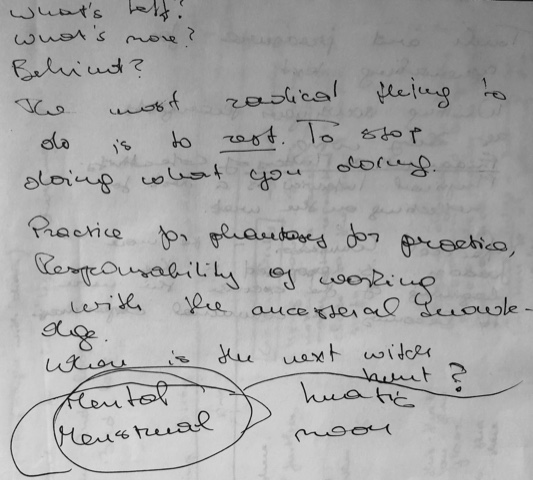 What's left?
What's more?
Behind?
The most radical thing to
do is to rest. To stop
doing what you doing.
Practice for phantasy for practice,
Responsability of working
with the ancesteral knowle-
dge.
When is the next witch
hunt?
Mental lunatic
Menstrual moon